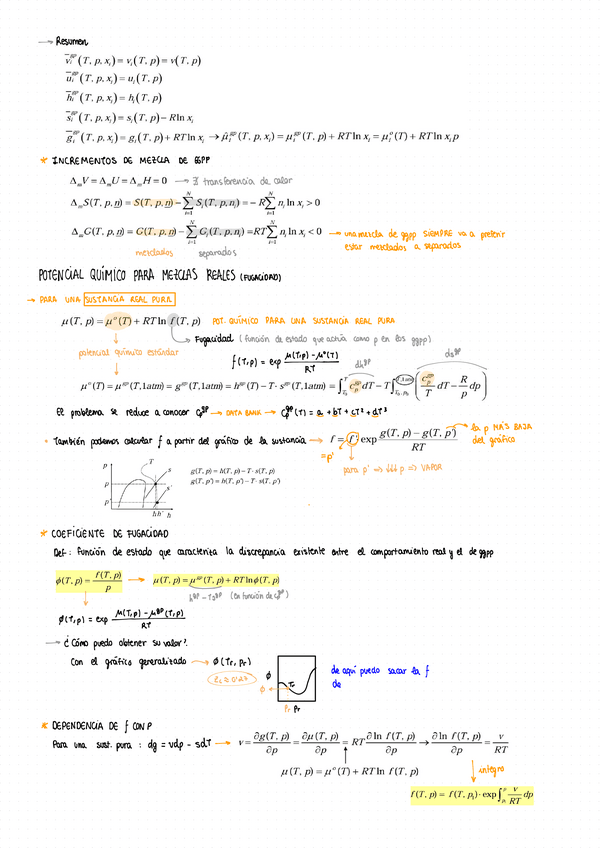 → Resumen
v̄ᵢᵍᵖ (T, p, xᵢ) = vᵢ (T, p) = v(T, p)
ūᵢᵍᵖ (T, p, xᵢ) = uᵢ (T, p)
h̄ᵢᵍᵖ (T, p, xᵢ) = hᵢ (T, p)
s̄ᵢᵍᵖ (T, p, xᵢ) = sᵢ (T, p) − R ln xᵢ
ḡᵢᵍᵖ (T, p, xᵢ) = gᵢ (T, p) + RT ln xᵢ → μ̂ᵢᵍᵖ (T, p, xᵢ) = μᵢᵍᵖ (T, p) + RT ln xᵢ = μᵢ° (T) + RT ln xᵢ p
* INCREMENTOS DE MEZCLA DE GGPP
ΔₘV = ΔₘU = ΔₘH = 0 → ∄ transferencia de calor
ΔₘS(T, p, n) = S(T, p, n) − Σᵢ₌₁ᴺ Sᵢ (T, p, nᵢ) = − R Σᵢ₌₁ᴺ nᵢ ln xᵢ > 0
ΔₘG(T, p, n) = G(T, p, n) − Σᵢ₌₁ᴺ Gᵢ (T, p, nᵢ) = RT Σᵢ₌₁ᴺ nᵢ ln xᵢ < 0 → una mezcla de ggpp SIEMPRE va a preferir
estar mezclados a separados
mezclados separados
POTENCIAL QUÍMICO PARA MEZCLAS REALES (FUGACIDAD)
→ PARA UNA SUSTANCIA REAL PURA
μ(T, p) = μ° (T) + RT ln f (T, p) POT. QUÍMICO PARA UNA SUSTANCIA REAL PURA
Fugacidad (función de estado que actúa como p en los ggpp)
potencial químico estándar
f(T,p) = exp (μ(T,p) − μ°(T)) / RT
dhᵍᵖ dsᵍᵖ
μ° (T) = μᵍᵖ (T,1atm) = gᵍᵖ (T,1atm) = hᵍᵖ (T) − T · sᵍᵖ (T,1atm) = ∫_T₀^T cₚᵍᵖ dT − T ∫_T₀,p₀^T,1atm (cₚᵍᵖ/T dT − R/p dp)
El problema se reduce a conocer Cpᵍᵖ → DATA BANK → Cpᵍᵖ(T) = a + bT + cT² + dT³
• También podemos calcular f a partir del gráfico de la sustancia → f = f' exp (g(T, p) − g(T, p')) / RT
la p MÁS BAJA
del gráfico
= p'
para p' ⇒ ↓↓↓ p ⇒ VAPOR
p T s s' p p' h h' h
g(T, p) = h(T, p) − T · s(T, p)
g(T, p') = h(T, p') − T · s(T, p')
* COEFICIENTE DE FUGACIDAD
Def: función de estado que caracteriza la discrepancia existente entre el comportamiento real y el de ggpp
φ(T, p) = f(T, p)/p → μ(T, p) = μᵍᵖ (T, p) + RT ln φ(T, p)
hᵍᵖ − Tsᵍᵖ (en función de cpᵍᵖ)
φ(T,p) = exp (μ(T,p) − μᵍᵖ(T,p)) / RT
→ ¿Cómo puedo obtener su valor?
Con el gráfico generalizado → φ(Tr, pr)
φ Tr φ pr pr
de aquí puedo sacar la f
de
* DEPENDENCIA DE f CON P
Para una sust. pura : dg = vdp − sdT → v = ∂g(T, p)/∂p = ∂μ(T, p)/∂p = RT ∂ ln f (T, p)/∂p → ∂ ln f (T, p)/∂p = v/RT
μ(T, p) = μ° (T) + RT ln f (T, p)
integro
f(T, p) = f(T, p₁) · exp ∫_p₁^p v/RT dp